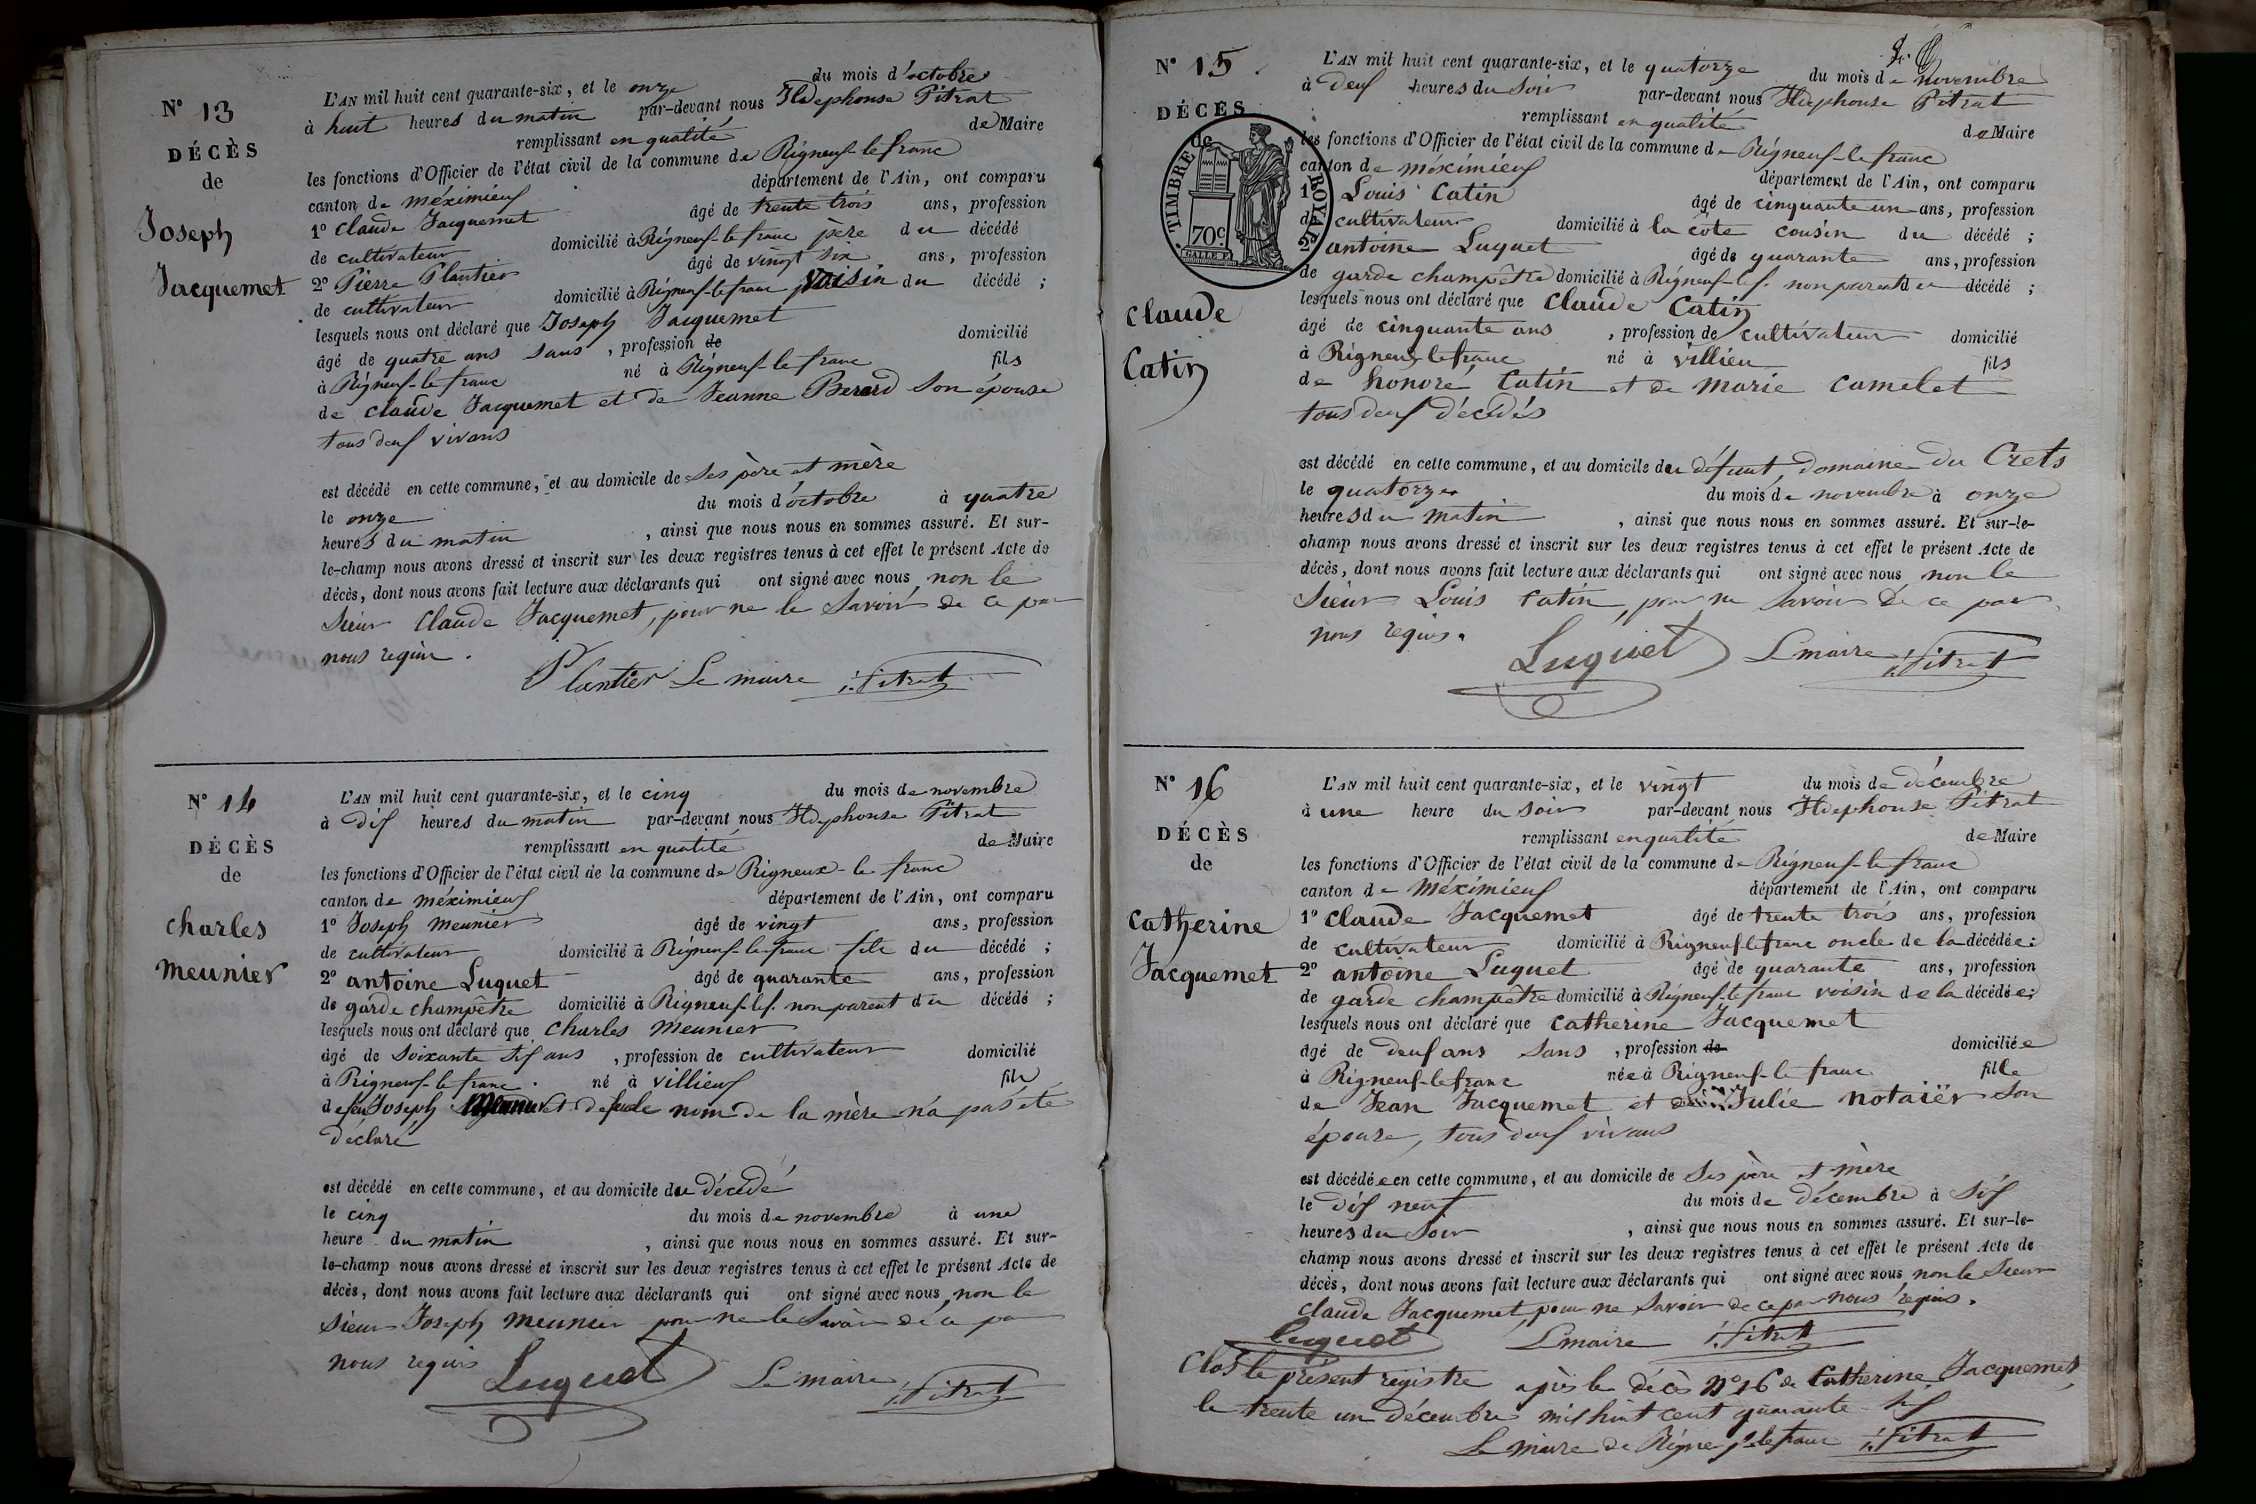 N° 13
DÉCÈS
de
Joseph
Jacquemet
L'AN mil huit cent quarante-six, et le onze du mois d'octobre
à huit heures du matin par-devant nous Ildephonse Pitrat
remplissant en qualité de Maire
les fonctions d'Officier de l'état civil de la commune de Rigneux-le franc
canton de méximieux département de l'Ain, ont comparu
1° Claude Jacquemet âgé de trente trois ans, profession
de cultivateur domicilié à Rigneux-le franc père du décédé
2° Pierre Plantier âgé de vingt six ans, profession
de cultivateur domicilié à Rigneux-le franc voisin du décédé ;
lesquels nous ont déclaré que Joseph Jacquemet
âgé de quatre ans sans , profession de domicilié
à Rigneux-le franc né à Rigneux-le franc fils
de Claude Jacquemet et de Jeanne Berard son épouse
tous deux vivans
est décédé en cette commune, et au domicile de ses père et mère
le onze du mois d'octobre à quatre
heures du matin , ainsi que nous nous en sommes assuré. Et sur-
le-champ nous avons dressé et inscrit sur les deux registres tenus à cet effet le présent Acte de
décès, dont nous avons fait lecture aux déclarants qui ont signé avec nous non le
sieur Claude Jacquemet, pour ne le savoir de ce par
nous requis.
Plantier Le maire I. Pitrat
N° 14
DÉCÈS
de
charles
meunier
L'AN mil huit cent quarante-six, et le cinq du mois de novembre
à dix heures du matin par-devant nous Ildephonse Pitrat
remplissant en qualité de Maire
les fonctions d'Officier de l'état civil de la commune de Rigneux-le franc
canton de méximieux département de l'Ain, ont comparu
1° Joseph meunier âgé de vingt ans, profession
de cultivateur domicilié à Rigneux-le-franc fils du décédé ;
2° antoine Luquet âgé de quarante ans, profession
de garde champêtre domicilié à Rigneux-lef. non parent du décédé ;
lesquels nous ont déclaré que charles meunier
âgé de soixante dix ans , profession de cultivateur domicilié
à Rigneux-le franc. né à villieux fils
de feu Joseph meunier et de nom de la mère n'a pas été
déclaré
est décédé en cette commune, et au domicile du décédé
le cinq du mois de novembre à une
heure du matin , ainsi que nous nous en sommes assuré. Et sur-
le-champ nous avons dressé et inscrit sur les deux registres tenus à cet effet le présent Acte de
décès, dont nous avons fait lecture aux déclarants qui ont signé avec nous non le
sieur Joseph meunier pour ne le savoir de ce par
nous requis
Luquet Le maire I. Pitrat
N° 15.
DÉCÈS
de
TIMBRE ROYAL
70c
claude
Catin
L'AN mil huit cent quarante-six, et le quatorze du mois de novembre
à deux heures du soir par-devant nous Ildephonse Pitrat
remplissant en qualité de Maire
les fonctions d'Officier de l'état civil de la commune de Rigneux-le franc
canton de méximieux département de l'Ain, ont comparu
1° Louis Catin âgé de cinquante un ans, profession
de cultivateur domicilié à la côte cousin du décédé ;
2° antoine Luquet âgé de quarante ans, profession
de garde champêtre domicilié à Rigneux-lef. non parent du décédé ;
lesquels nous ont déclaré que Claude Catin
âgé de cinquante ans , profession de cultivateur domicilié
à Rigneux-le franc né à villieu fils
de honoré Catin et de marie camelet
tous deux décédés
est décédé en cette commune, et au domicile du défunt, domaine du Crets
le quatorze du mois de novembre à onze
heures du matin , ainsi que nous nous en sommes assuré. Et sur-le-
champ nous avons dressé et inscrit sur les deux registres tenus à cet effet le présent Acte de
décès, dont nous avons fait lecture aux déclarants qui ont signé avec nous non le
sieur Louis catin, pour ne savoir de ce par
nous requis.
Luquet Le maire I. Pitrat
N° 16
DÉCÈS
de
catherine
Jacquemet
L'AN mil huit cent quarante-six, et le vingt du mois de décembre
à une heure du soir par-devant nous Ildephonse Pitrat
remplissant en qualité de Maire
les fonctions d'Officier de l'état civil de la commune de Rigneux-le franc
canton de méximieux département de l'Ain, ont comparu
1° claude Jacquemet âgé de trente trois ans, profession
de cultivateur domicilié à Rigneux-le franc oncle de la décédée ;
2° antoine Luquet âgé de quarante ans, profession
de garde champêtre domicilié à Rigneux-le franc voisin de la décédée ;
lesquels nous ont déclaré que catherine Jacquemet
âgé de deux ans sans , profession de domiciliée
à Rigneux-le franc née à Rigneux-le franc fille
de Jean Jacquemet et de Julie notaïer son
épouse, tous deux vivans
est décédée en cette commune, et au domicile de ses père et mère
le dix neuf du mois de décembre à six
heures du soir , ainsi que nous nous en sommes assuré. Et sur-le-
champ nous avons dressé et inscrit sur les deux registres tenus à cet effet le présent Acte de
décès, dont nous avons fait lecture aux déclarants qui ont signé avec nous non le sieur
claude Jacquemet, pour ne savoir de ce par nous requis.
Luquet Le maire I. Pitrat
Clos le présent registre après le décès N° 16 de Catherine Jacquemet,
le trente un décembre mil huit cent quarante-six
Le maire de Rigneux-le franc I. Pitrat